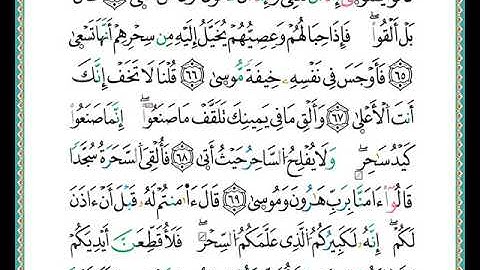 بَلْ أَلْقُواْۖ فَإِذَا حِبَالُهُمْ وَعِصِيُّهُمْ يُخَيَّلُ إِلَيْهِ مِن سِحْرِهِمْ أَنَّهَا تَسْعَىٰ
٦٥ فَأَوْجَسَ فِي نَفْسِهِۦ خِيفَةً مُّوسَىٰ ٦٦ قُلْنَا لَا تَخَفْ إِنَّكَ
أَنتَ ٱلْأَعْلَىٰ ٦٧ وَأَلْقِ مَا فِي يَمِينِكَ تَلَقَّفْ مَا صَنَعُواْۖ إِنَّمَا صَنَعُواْ
كَيْدُ سَٰحِرٍۖ وَلَا يُفْلِحُ ٱلسَّاحِرُ حَيْثُ أَتَىٰ ٦٨ فَأُلْقِيَ ٱلسَّحَرَةُ سُجَّدًا
قَالُواْ ءَامَنَّا بِرَبِّ هَٰرُونَ وَمُوسَىٰ ٦٩ قَالَ ءَاٰمَنتُمْ لَهُۥ قَبْلَ أَنْ ءَاذَنَ
لَكُمْۖ إِنَّهُۥ لَكَبِيرُكُمُ ٱلَّذِي عَلَّمَكُمُ ٱلسِّحْرَۖ فَلَأُقَطِّعَنَّ أَيْدِيَكُمْ